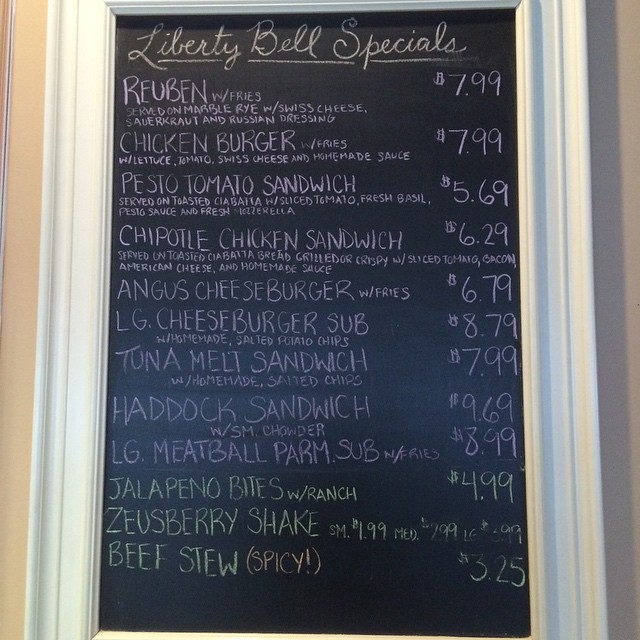 Liberty Bell Specials
REUBEN W/FRIES $7.99
SERVED ON MARBLE RYE W/SWISS CHEESE,
SAUERKRAUT AND RUSSIAN DRESSING
CHICKEN BURGER W/FRIES $7.99
W/LETTUCE, TOMATO, SWISS CHEESE AND HOMEMADE SAUCE
PESTO TOMATO SANDWICH $5.69
SERVED ON TOASTED CIABATTA W/SLICED TOMATO, FRESH BASIL,
PESTO SAUCE AND FRESH MOZZERELLA
CHIPOTLE CHICKEN SANDWICH $6.29
SERVED ON TOASTED CIABATTA BREAD GRILLED OR CRISPY W/ SLICED TOMATO, BACON,
AMERICAN CHEESE, AND HOMEMADE SAUCE
ANGUS CHEESEBURGER W/FRIES $6.79
LG. CHEESEBURGER SUB $8.79
W/HOMEMADE, SALTED POTATO CHIPS
TUNA MELT SANDWICH $7.99
W/HOMEMADE, SALTED CHIPS
HADDOCK SANDWICH $9.69
W/SM. CHOWDER
LG. MEATBALL PARM. SUB W/FRIES $8.99
JALAPENO BITES W/RANCH $4.99
ZEUSBERRY SHAKE SM. $1.99 MED. $2.99 LG. $3.99
BEEF STEW (SPICY!) $3.25